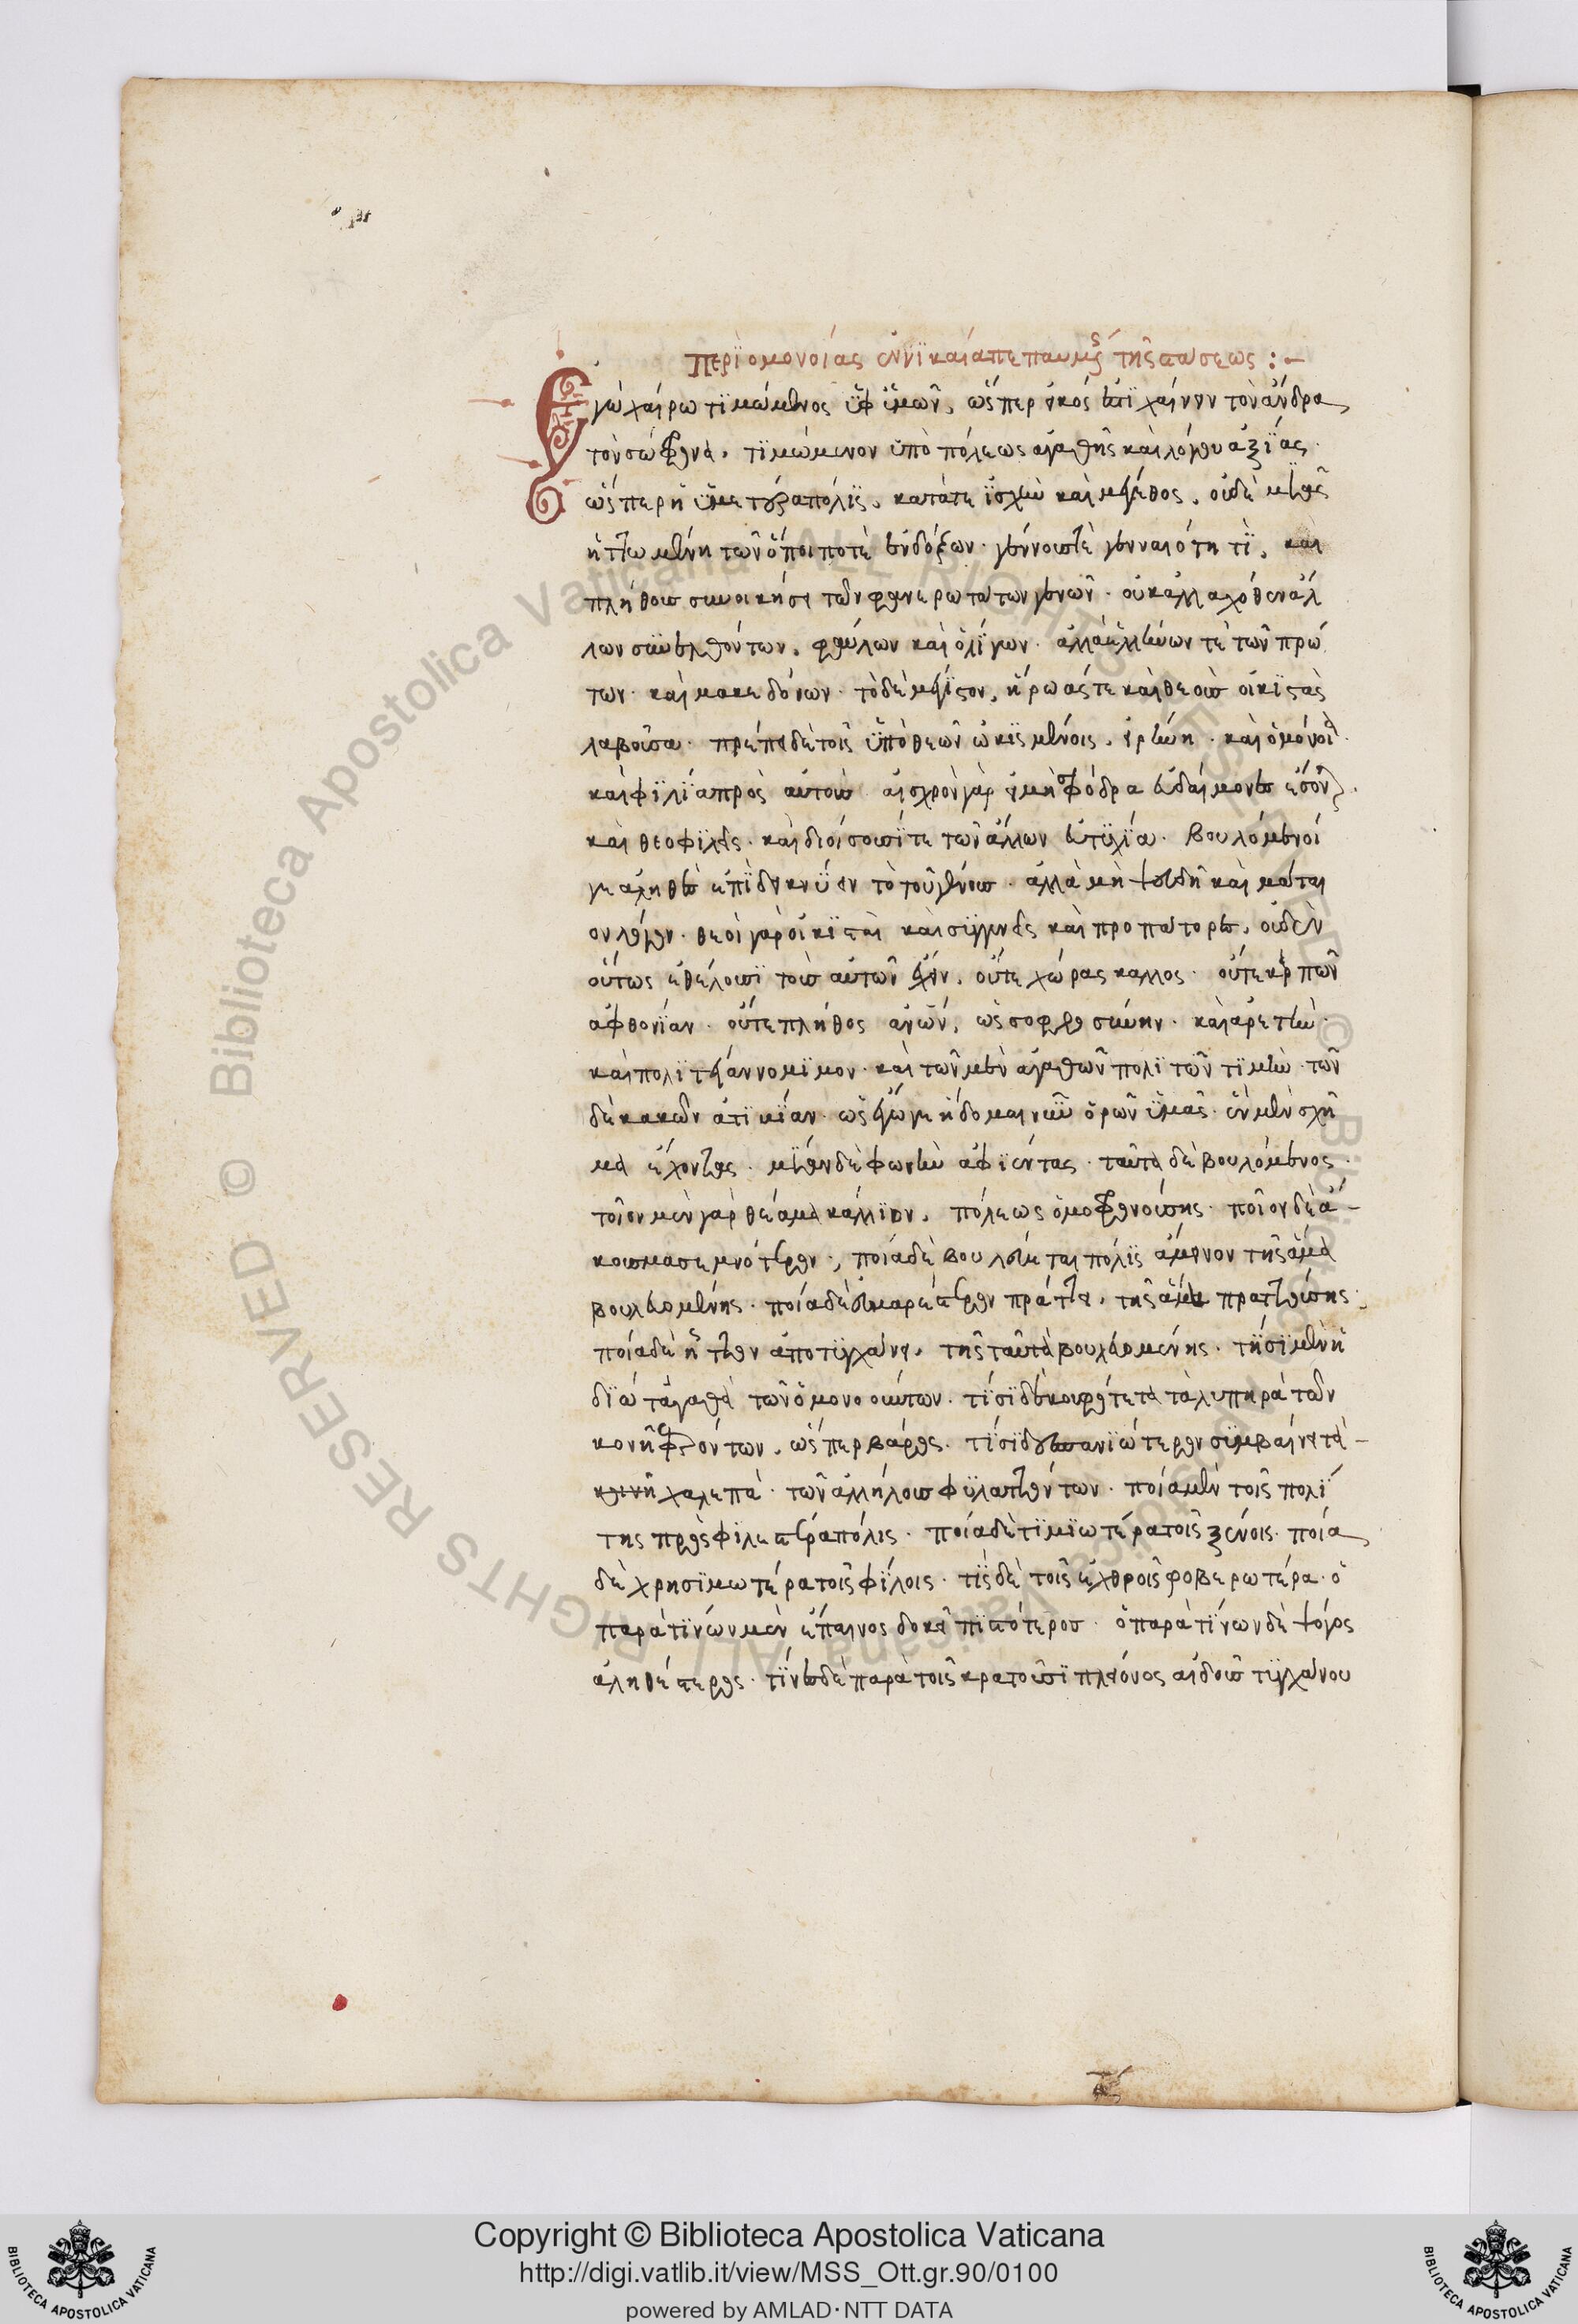 Περὶ ὁμονοίας ἐν νικαίᾳ πεπαυμένης τῆς στάσεως :-
Ἐγὼ χαίρω τιμώμενος ὑφ' ὑμῶν, ὥσπερ εἰκός ἐστι χαίρειν τὸν ἄνδρα
τὸν σώφρονα, τιμώμενον ὑπὸ πόλεως ἀγαθῆς καὶ λόγου ἀξίας.
ὥσπερ ἡ ὑμετέρα πόλις, κατά τε ἰσχὺν καὶ μέγεθος, οὐδεμιᾶς
ἡττωμένη τῶν ὅποι ποτὲ ἐνδόξων. γένους τὲ γενναιότητι, καὶ
πλήθους συνοικήσει τῶν φανερωτάτων γενῶν. οὐκ ἀλλαχόθεν ἄλ
λων συνελθόντων, φαύλων καὶ ὀλίγων. ἀλλὰ ἑλλήνων τὲ τῶν πρώ
των. καὶ μακεδόνων. τὸ δὲ μέγιστον, ἥρωάς τε καὶ θεοὺς οἰκιστὰς
λαβοῦσα. πρέπει δὲ τοῖς ὑπὸ θεῶν ᾠκισμένοις, εἰρήνη. καὶ ὁμόνοια.
καὶ φιλία πρὸς αὐτούς. αἰσχρὸν γὰρ εἰ μὴ σφόδρα εὐδαίμονες ἔσονται.
καὶ θεοφιλεῖς. καὶ διοίσουσί τε τῶν ἄλλων εὐτυχίᾳ. βουλόμενοί
γε ἀληθὲς ἐπιδεικνύειν τὸ τοῦ γένους. ἀλλὰ μὴ ψευδῆ καὶ μάται
ον λόγον. θεοὶ γὰρ οἰκισταὶ καὶ συγγενεῖς καὶ προπάτορες, οὐδὲν
οὕτως ἐθέλουσι τοὺς αὐτῶν ἔχειν. οὔτε χώρας καλλος. οὔτε καρπῶν
ἀφθονίαν. οὔτε πλῆθος ἀνων, ὡς σοφροσύνην. καὶ ἀρετὴν.
καὶ πολιτείαν νομιμον. καὶ τῶν μὲν ἀγαθῶν πολιτῶν τιμὴν. τῶν
δὲ κακῶν ἀτιμίαν. ὡς ἔγωγε ἥδομαι νῦν ὁρῶν ὑμᾶς. ἓν μὲν σχῆ
μα ἔχοντας. μίαν δὲ φωνὴν ἀφιέντας. ταῦτα δὲ βουλόμενος.
ποῖον μὲν γὰρ θέαμα κάλλιον, πόλεως ὁμοφρονούσης. ποῖον δὲ ἄ-
κουσμα σεμνότερον; ποία δὲ βουλεύεται πόλις ἄμεινον τῆς ἅμα
βουλευομένης. ποία δὲ εὐμαρέστερον πράττει, τῆς ἅμα πραττούσης.
ποία δὲ ἧττον ἀποτυγχάνει, τῆς ταῦτα βουλευομένης. τίσι μὲν ἡ
δίω τἀγαθὰ τῶν ὁμονοούντων. τίσι δὲ κουφότετα τὰ λυπηρά τῶν
κονῇ φερόντων, ὥσπερ βάρος. τίσι δὲ σπανιώτερον συμβαίνει τὰ-
χαλεπὰ. τῶν ἀλλήλους φυλαττόντων. ποία μὲν τοῖς πολί
της προσφιλεστέρα πόλις. ποία δὲ τιμιωτέρα τοῖς ξένοις. ποία
δὲ χρησιμωτέρα τοῖς φίλοις. τίς δὲ τοῖς ἐχθροῖς φοβερωτέρα. ὁ
παρὰ τίνων μὲν ἔπαινος δοκεῖ πιστότερος. ὁ παρὰ τίνων δὲ ψόγος
ἀληθέστερος. τίνες δὲ παρὰ τοῖς κρατοῦσι πλείονος αἰδοῦς τυγχάνου
Copyright © Biblioteca Apostolica Vaticana
http://digi.vatlib.it/view/MSS_Ott.gr.90/0100
powered by AMLAD·NTT DATA